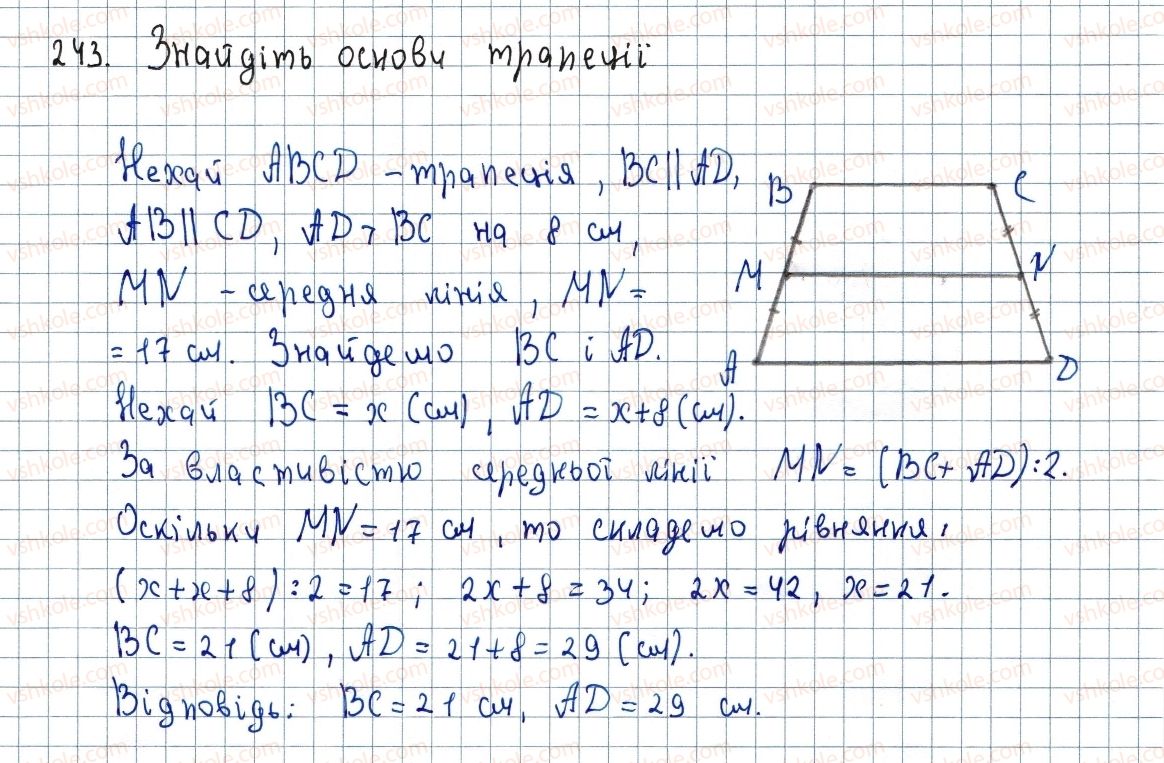 243. Знайдіть основи трапеції
Нехай ABCD – трапеція, BC || AD,
AB || CD, AD > BC на 8 см,
MN – середня лінія, MN =
= 17 см. Знайдемо BC і AD.
B C
M N
A D
Нехай BC = x (см), AD = x+8 (см).
За властивістю середньої лінії MN = (BC + AD) : 2.
Оскільки MN = 17 см, то складемо рівняння:
(x+x+8) : 2 = 17; 2x + 8 = 34; 2x = 42, x = 21.
BC = 21 (см), AD = 21+8 = 29 (см).
Відповідь: BC = 21 см, AD = 29 см.
vshkole.com